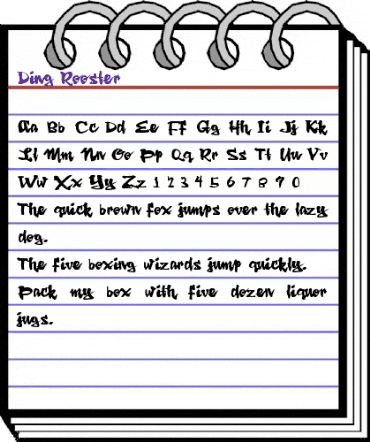 Ding Rooster
Aa Bb Cc Dd Ee Ff Gg Hh Ii Jj Kk
Ll Mm Nn Oo Pp Qq Rr Ss Tt Uu Vv
Ww Xx Yy Zz 1 2 3 4 5 6 7 8 9 0
The quick brown fox jumps over the lazy
dog.
The five boxing wizards jump quickly.
Pack my box with five dozen liquor
jugs.